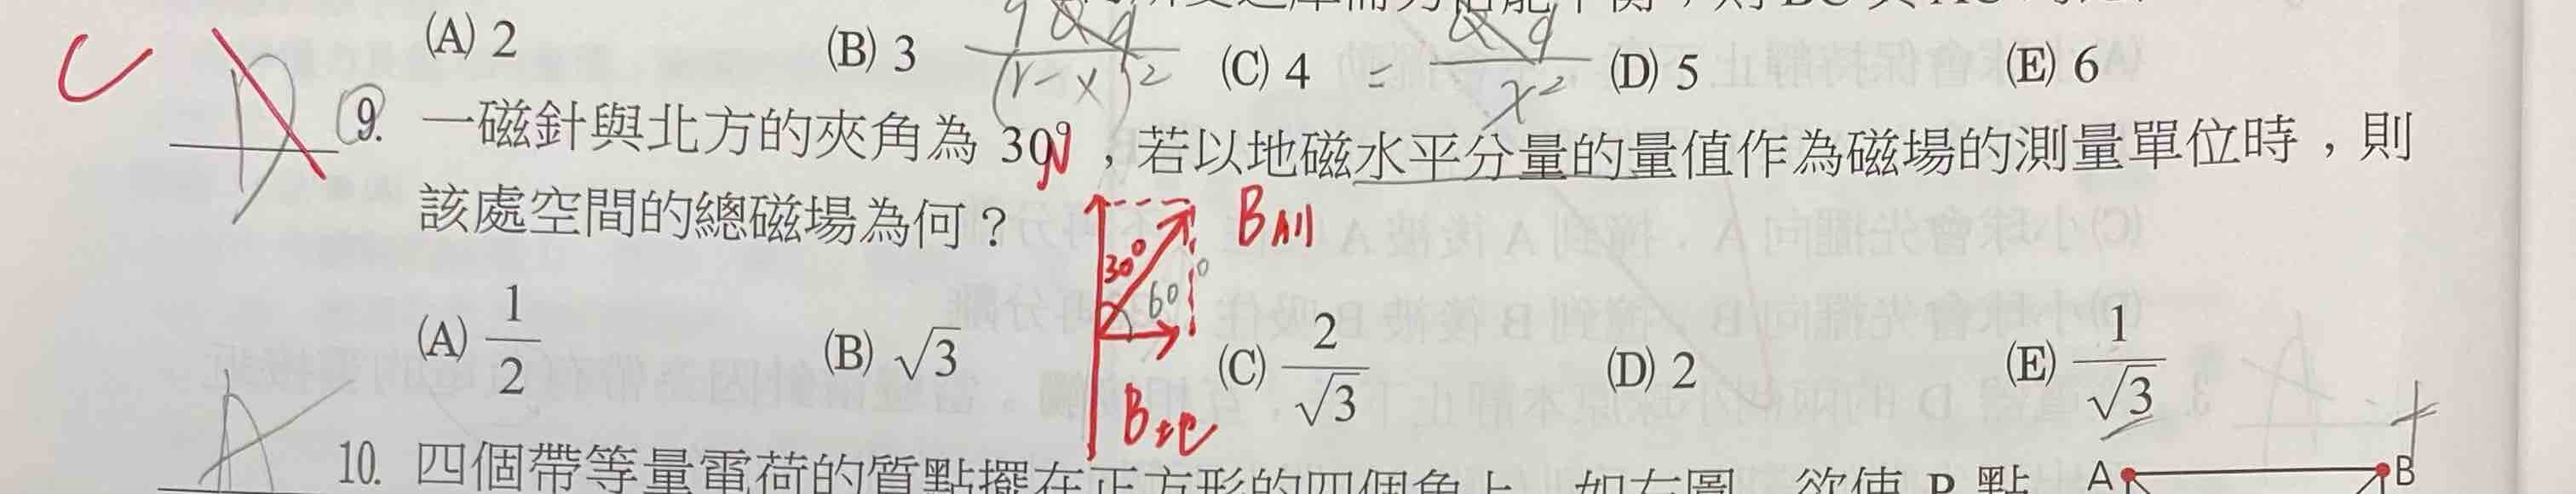 (A) 2 (B) 3 (C) 4 (D) 5 (E) 6
q Q q / (r-x)² = Q q / x²
C D 9. 一磁針與北方的夾角為 30°,若以地磁水平分量的量值作為磁場的測量單位時,則
該處空間的總磁場為何?
B All
30°
60°
(A) 1/2 (B) √3 (C) 2/√3 (D) 2 (E) 1/√3
A 10. 四個帶等量電荷的質點擺在正方形的四個角上,如右圖,欲使 P 點
A B